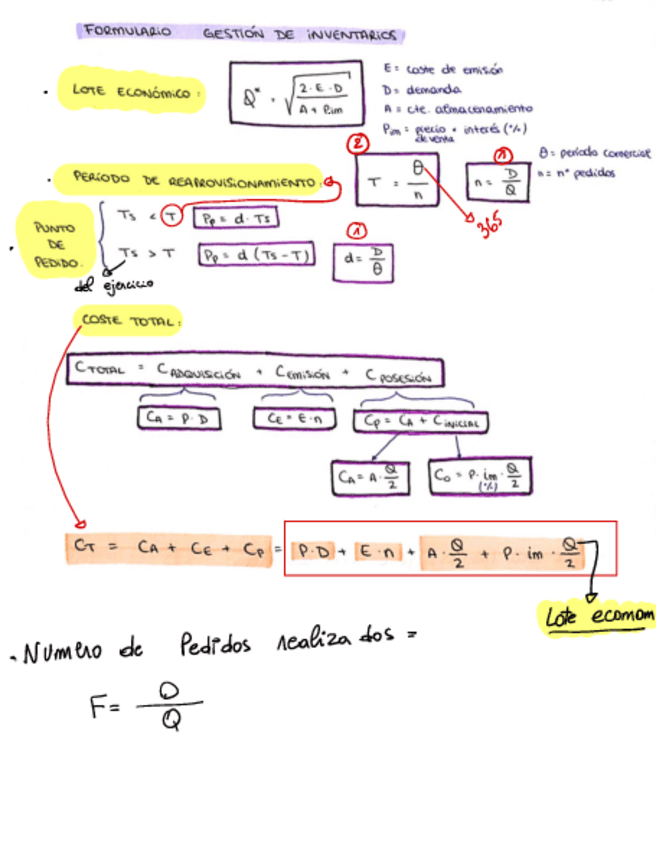 FORMULARIO GESTIÓN DE INVENTARIOS
LOTE ECONÓMICO:
Q* = √(2·E·D / A + P.im)
E = coste de emisión
D = demanda
A = cte. almacenamiento
Pim = precio de venta * interés (%)
θ = período comercial
n = nº pedidos
PERÍODO DE REAPROVISIONAMIENTO:
② T = θ / n
① n = D / Q
365
PUNTO DE PEDIDO.
Ts < T Pp = d · Ts
Ts > T Pp = d (Ts - T)
① d = D / θ
del ejercicio
COSTE TOTAL:
CTOTAL = CADQUISICIÓN + CEMISIÓN + CPOSESIÓN
CA = P·D
CE = E·n
CP = CA + CINICIAL
CA = A · Q/2
CO = P · im (%) · Q/2
CT = CA + CE + CP = P·D + E·n + A · Q/2 + P · im · Q/2
Lote econom
. Numero de Pedidos realizados =
F = D / Q